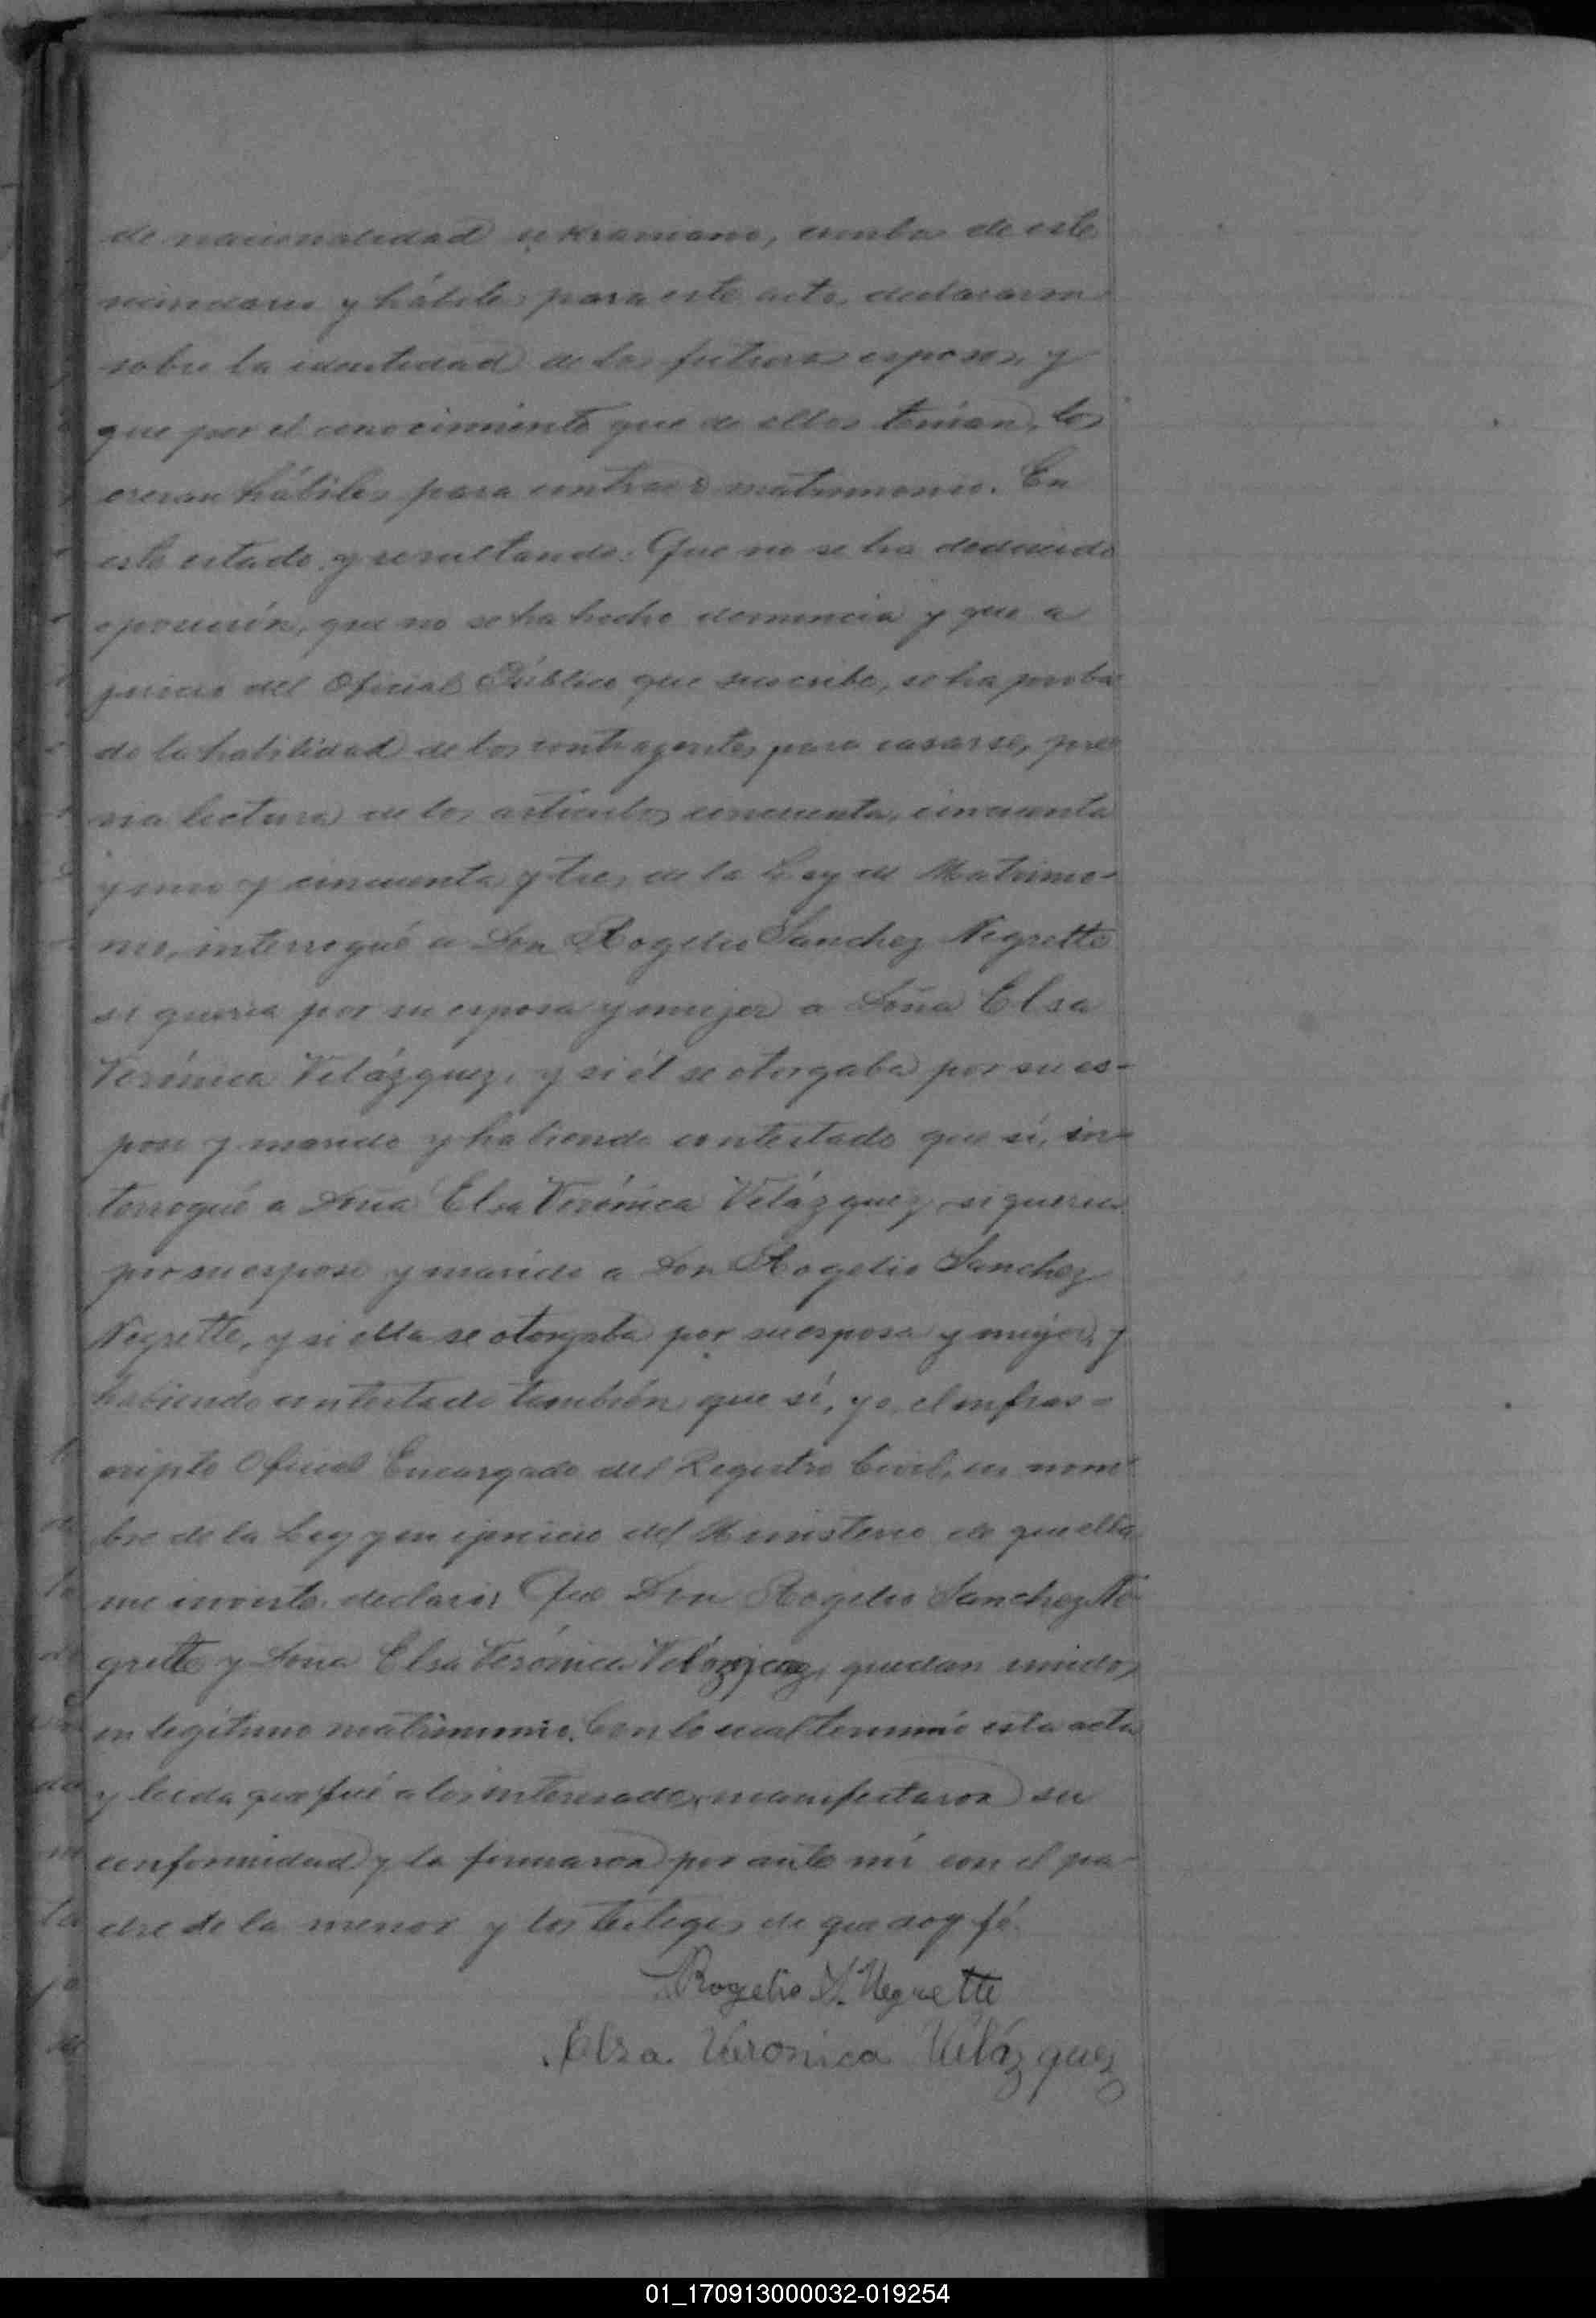 de nacionalidad ukraniano, ambos de este
vecindario y hábiles para este acto, declararon
sobre la identidad de los futuros esposos, y
que por el conocimiento que de ellos tenian, los
creian hábiles para contraer matrimonio. En
este estado y resultando: Que no se ha deducido
oposición, que no se ha hecho denuncia y que a
juicio del Oficial Público que suscribe, se ha proba
do la habilidad de los contrayentes para casarse, pre
via lectura de los articulos cincuenta, cincuenta
y uno y cincuenta y tres de la Ley de Matrimo-
nio, interrogué a Don Rogelio Sanchez Negrette
si queria por su esposa y mujer a Doña Elsa
Verónica Velázquez, y si él se otorgaba por su es-
poso y marido y habiendo contestado que sí, in-
terrogué a Doña Elsa Verónica Velázquez, si queria
por su esposo y marido a Don Rogelio Sanchez
Negrette, y si ella se otorgaba por su esposa y mujer, y
habiendo contestado también que sí, yo, el infras-
cripto Oficial Encargado del Registro Civil, en nom
bre de la Ley y en ejercicio del Ministerio de que ella
me inviste, declaro: Que Don Rogelio Sanchez Ne-
grette y Doña Elsa Verónica Velázquez, quedan unidos
en legítimo matrimonio. Con lo cual terminó esta acta
y leida que fué a los interesados, manifestaron su
conformidad y la firmaron por ante mí con el pa-
dre de la menor y los testigos de que doy fé.
Rogelio S. Negrette
Elsa Veronica Velázquez
01_170913000032-019254